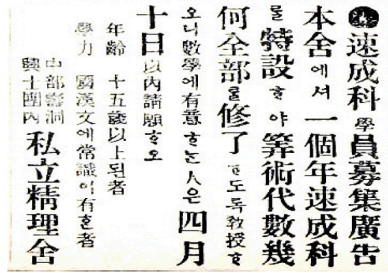 速成科學員募集廣告
本舍에셔一個年速成科
를特設ᄒᆞ야筭術代數幾
何全部를修了ᄒᆞ도록敎授ᄒᆞ
오니數學에有意ᄒᆞᆫ人은四月
十日以內請願ᄒᆞ오
年齡 十五歲以上된者
學力 國漢文에常識이有ᄒᆞᆫ者
中部磚洞
興士團內 私立精理舍